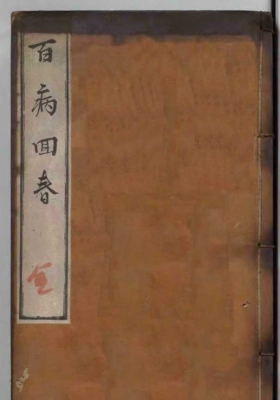 百病回春
全